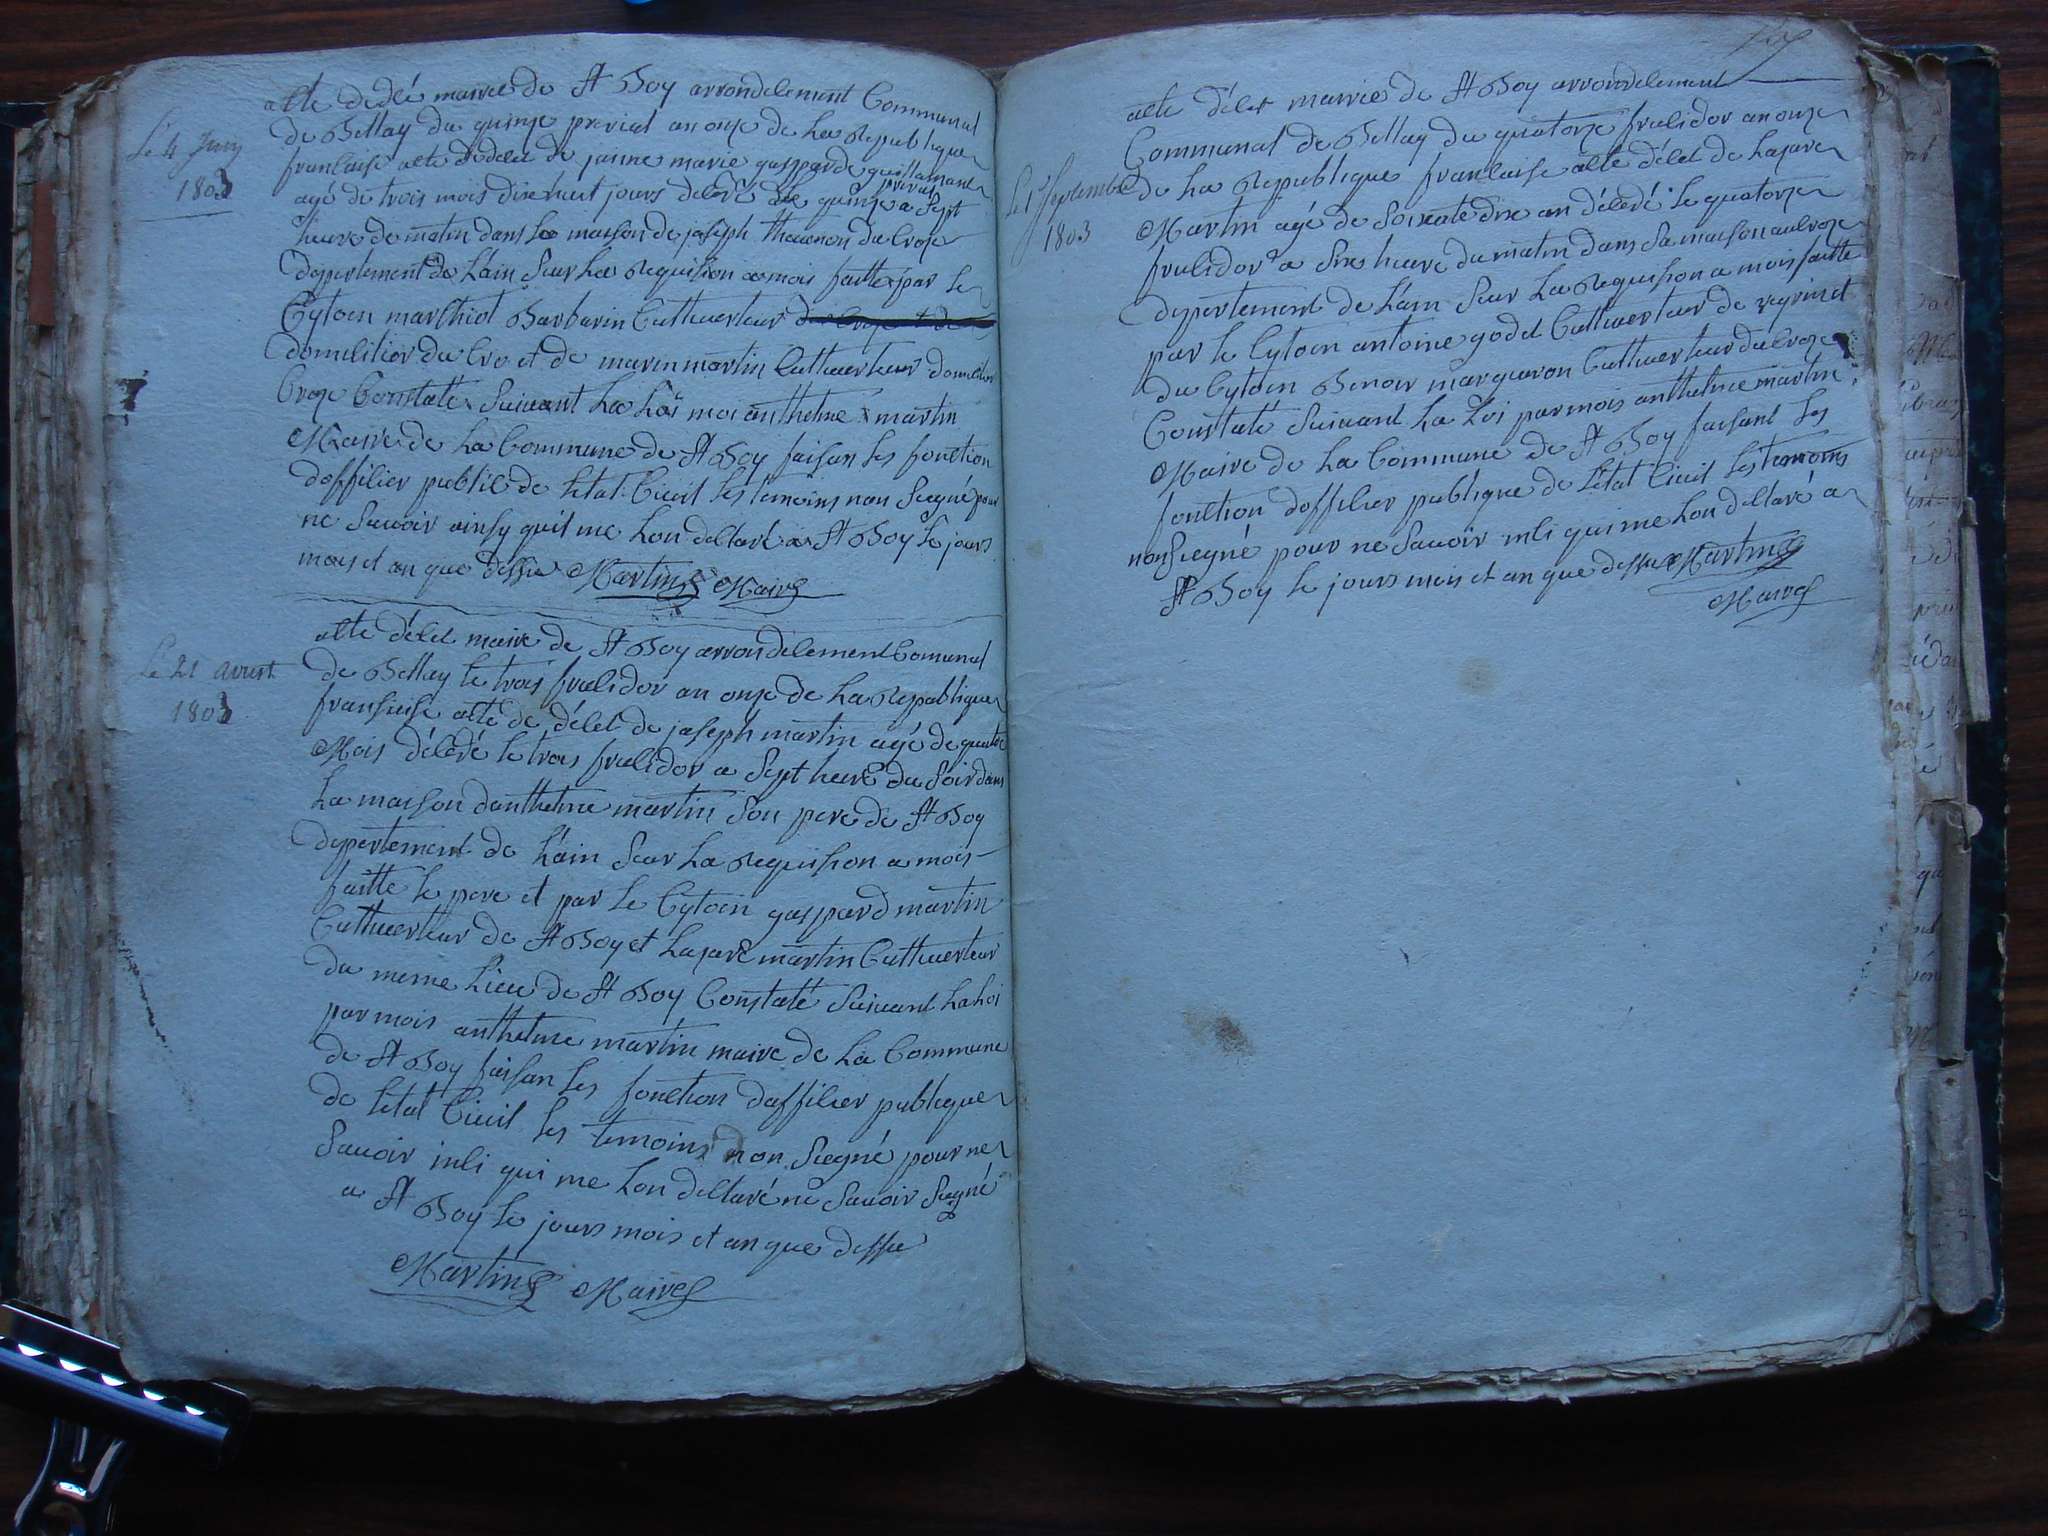 acte dedé mairie de St Boy arrondicement Communal
de Bellay du quinze prerial an onze de La Republique
Le 4 Juin
1803
francaise acte de décet de janne marie gasparde guillamant
agé de trois mois dixe huit jours décédé le quinze prerial a Sept
heure de matin dans La maison de joseph thavenon du Croze
deppertement de L'ain Seur La requisition a mois faitte par le
Cytoein marthiot Barbarin Cultuerteur
domicilier du Cro et de marin martin Cultuerteur domicilier
Croze Constaté Suivant La Loi moi anthelme martin
Maire de La Commune de St Boy faisan les fonction
dofficier public de Létat Civil les temoins non Siegné pour
ne Savoir ainsy quil me Lon déclaré a St Boy le jours
mois et an que dessu Martin Maire
acte décet maire de St Boy arrondicement Comunal
Le 21 aoust
1803
de Bellay le trois frucidor an onze de La Republique
fransaise acte de décet de joseph martin agé de quatre
Mois décédé le trois frucidor a Sept heure du Soir dans
La maison danthelme martin Son pere de St Boy
deppertement de L'ain Seur La requision a mois
faitte le pere et par le Cytoein gaspard martin
Cultuerteur de St Boy et Lazare martin Cultuerteur
du meme Lieu de St Boy Constaté Suivant La Loi
par mois anthelme martin maire de La Commune
de St Boy faisan les fonction dofficier publique
de Létat Civil les temoins non Siegné pour ne
Savoir inci qui me Lon déclaré ne Savoir Siegné
a St Boy le jours mois et an que dessu
Martin Maire
acte décet mairie de St Boy arrondicement
Communal de Bellay du quatorze frucidor an onze
Le 1er Septembre
1803
de La Republique francaise acte décet de Lazare
Martin agé de Soixcate dixe an décédé le quatorze
frucidor a Sixe heure du matin dans Sa maison au Croze
deppertement de L'ain Seur La requision a mois faitte
par le Cytoein antoine godet Cultuerteur de
du Cytoein Benoir margueron Cultuerteur du Croze
Constaté Suivant La Loi par mois anthelme martin
Maire de La Commune de St Boy faisant les
fonction dofficier publique de Létat Civil les temoins
non Siegné pour ne Savoir inci qui me Lon déclaré a
St Boy le jours mois et an que dessu Martin
Maire